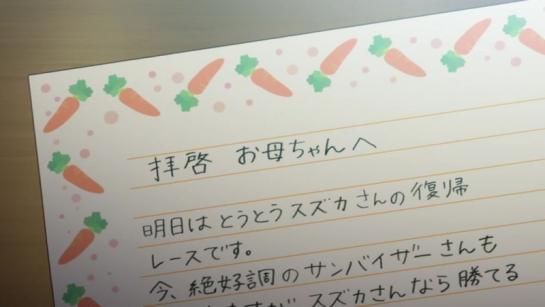 拝啓 お母ちゃんへ
明日はとうとうスズカさんの復帰
レースです。
今、絶好調のサンバイザーさんも
スズカさんなら勝てる